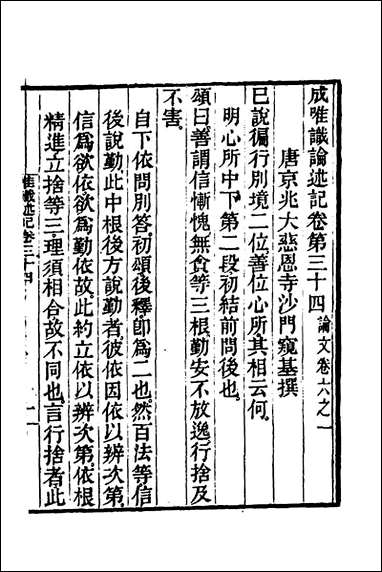 成唯識論述記卷第三十四 論文卷六之一
唐京兆大慈恩寺沙門窺基撰
已說徧行別境二位善位心所其相云何
明心所中下第二段初結前問後也
頌曰善謂信慚愧無貪等三根勤安不放逸行捨及
不害
自下依問別答初頌後釋卽爲二也然百法等信
後說勤此中根後方說勤者彼依因依以辨次第
信爲欲依欲爲勤依故此約立依以辨次第依根
精進立捨等三理須相合故不同也言行捨者此
唯識述記卷三十四
一